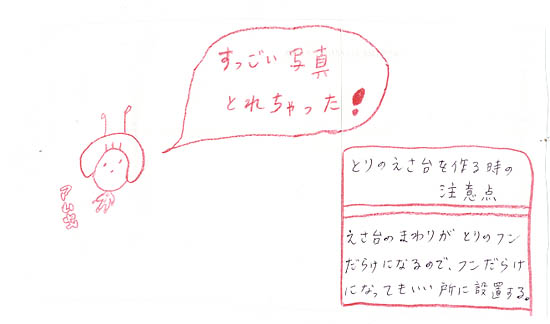 すっごい写真
とれちゃった!
とりのえさ台を作る時の
注意点
えさ台のまわりがとりのフン
だらけになるので、フンだらけ
になってもいい所に設置する。